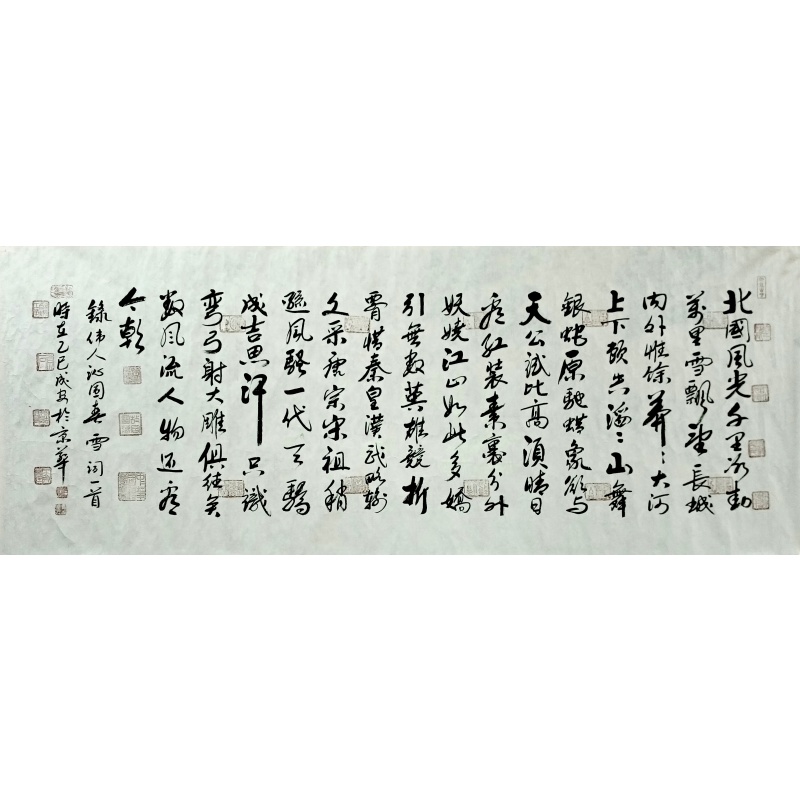 北國風光千里冰封
萬里雪飄望長城
内外惟餘莽〻大河
上下頓失滔〻山舞
銀蛇原馳蜡象欲与
天公試比高須晴日
看红装素裹分外
妖嬈江山如此多嬌
引無數英雄競折
腰惜秦皇漢武略輸
文采唐宗宋祖稍
遜風騷一代天驕
成吉思汗只識
彎弓射大雕俱往矣
數風流人物还看
今朝
錄偉人沁園春雪詞一首
時在乙巳成安於京華